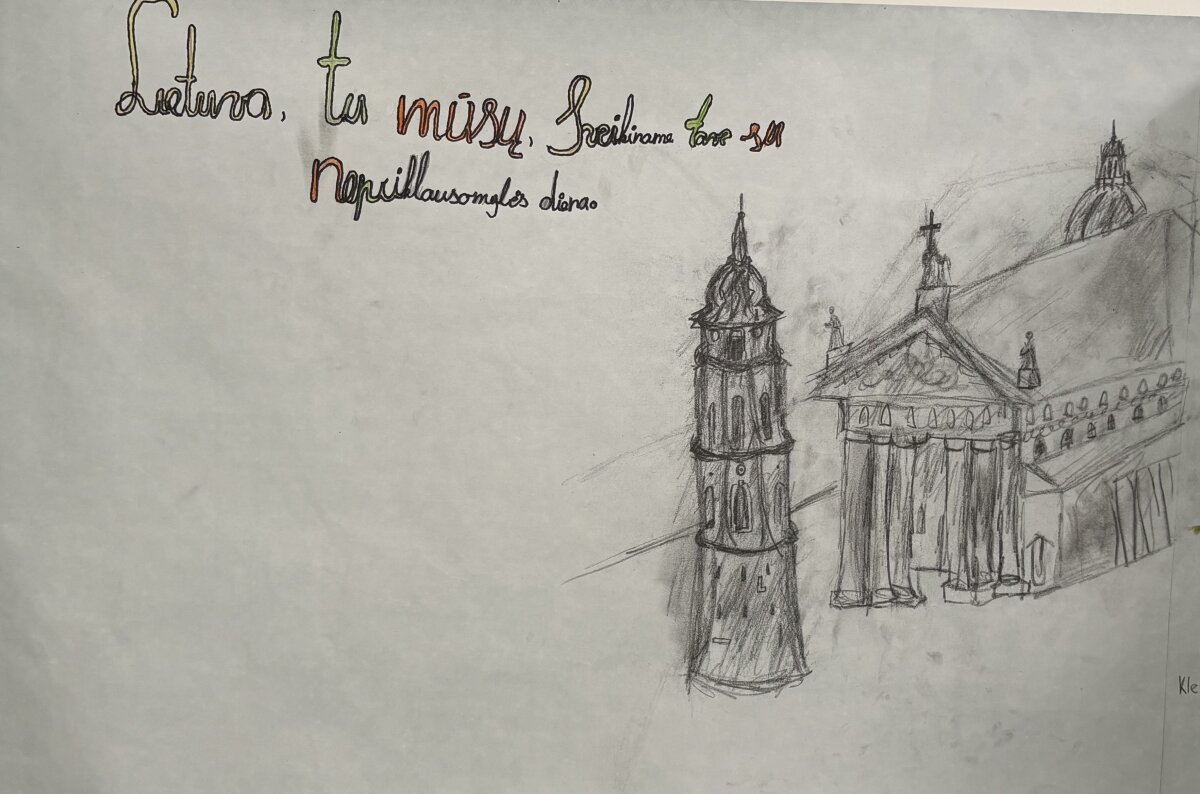 Lietuva, tu mūsų, Sveikiname tave su
Nepriklausomybės diena.
Kle